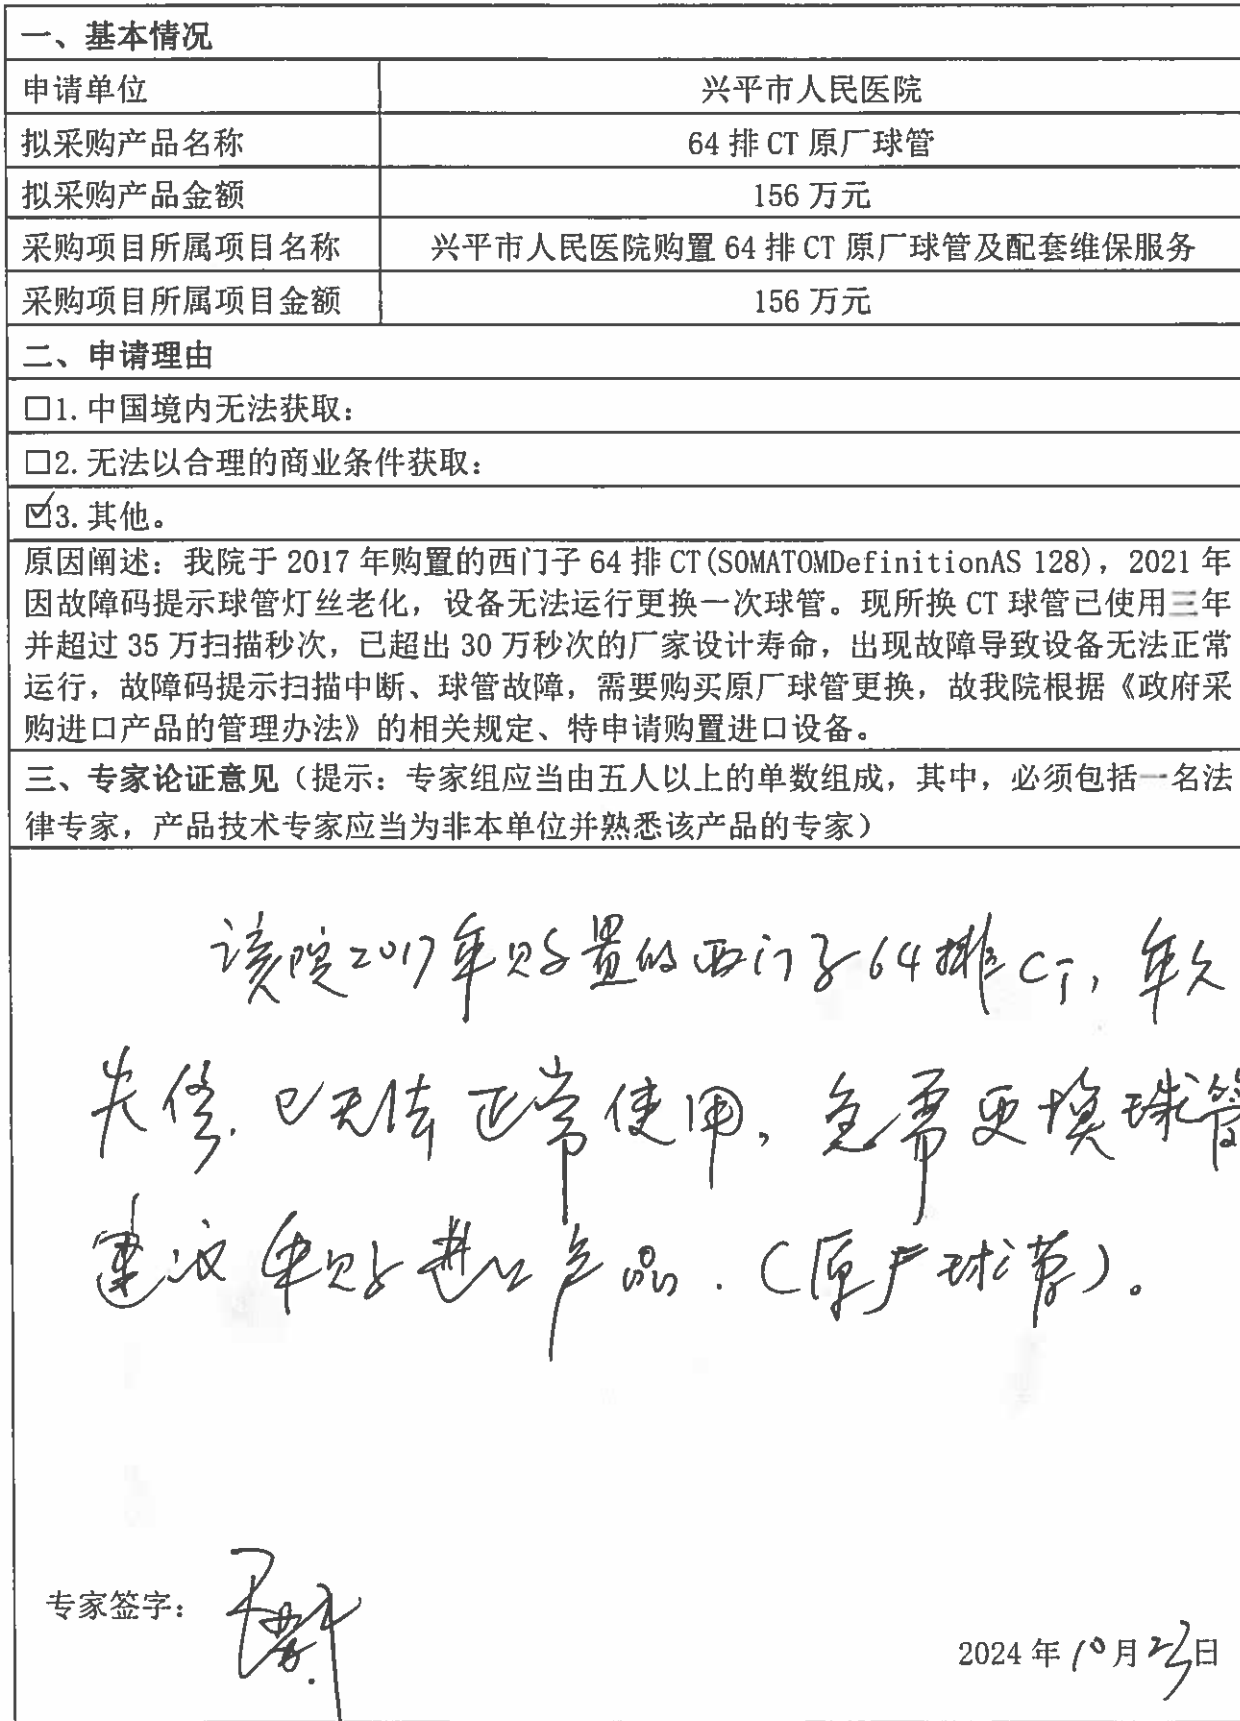 一、基本情况
申请单位 兴平市人民医院
拟采购产品名称 64 排 CT 原厂球管
拟采购产品金额 156 万元
采购项目所属项目名称 兴平市人民医院购置 64 排 CT 原厂球管及配套维保服务
采购项目所属项目金额 156 万元
二、申请理由
□1. 中国境内无法获取：
□2. 无法以合理的商业条件获取：
☑3. 其他。
原因阐述：我院于 2017 年购置的西门子 64 排 CT(SOMATOMDefinitionAS 128)，2021 年
因故障码提示球管灯丝老化，设备无法运行更换一次球管。现所换 CT 球管已使用三年
并超过 35 万扫描秒次，已超出 30 万秒次的厂家设计寿命，出现故障导致设备无法正常
运行，故障码提示扫描中断、球管故障，需要购买原厂球管更换，故我院根据《政府采
购进口产品的管理办法》的相关规定、特申请购置进口设备。
三、专家论证意见（提示：专家组应当由五人以上的单数组成，其中，必须包括一名法
律专家，产品技术专家应当为非本单位并熟悉该产品的专家）
该院2017年购置的西门子64排CT，年久
失修，已无法正常使用，急需更换球管
建议采购进口产品．（原厂球管）。
专家签字：
2024 年 10 月 23 日